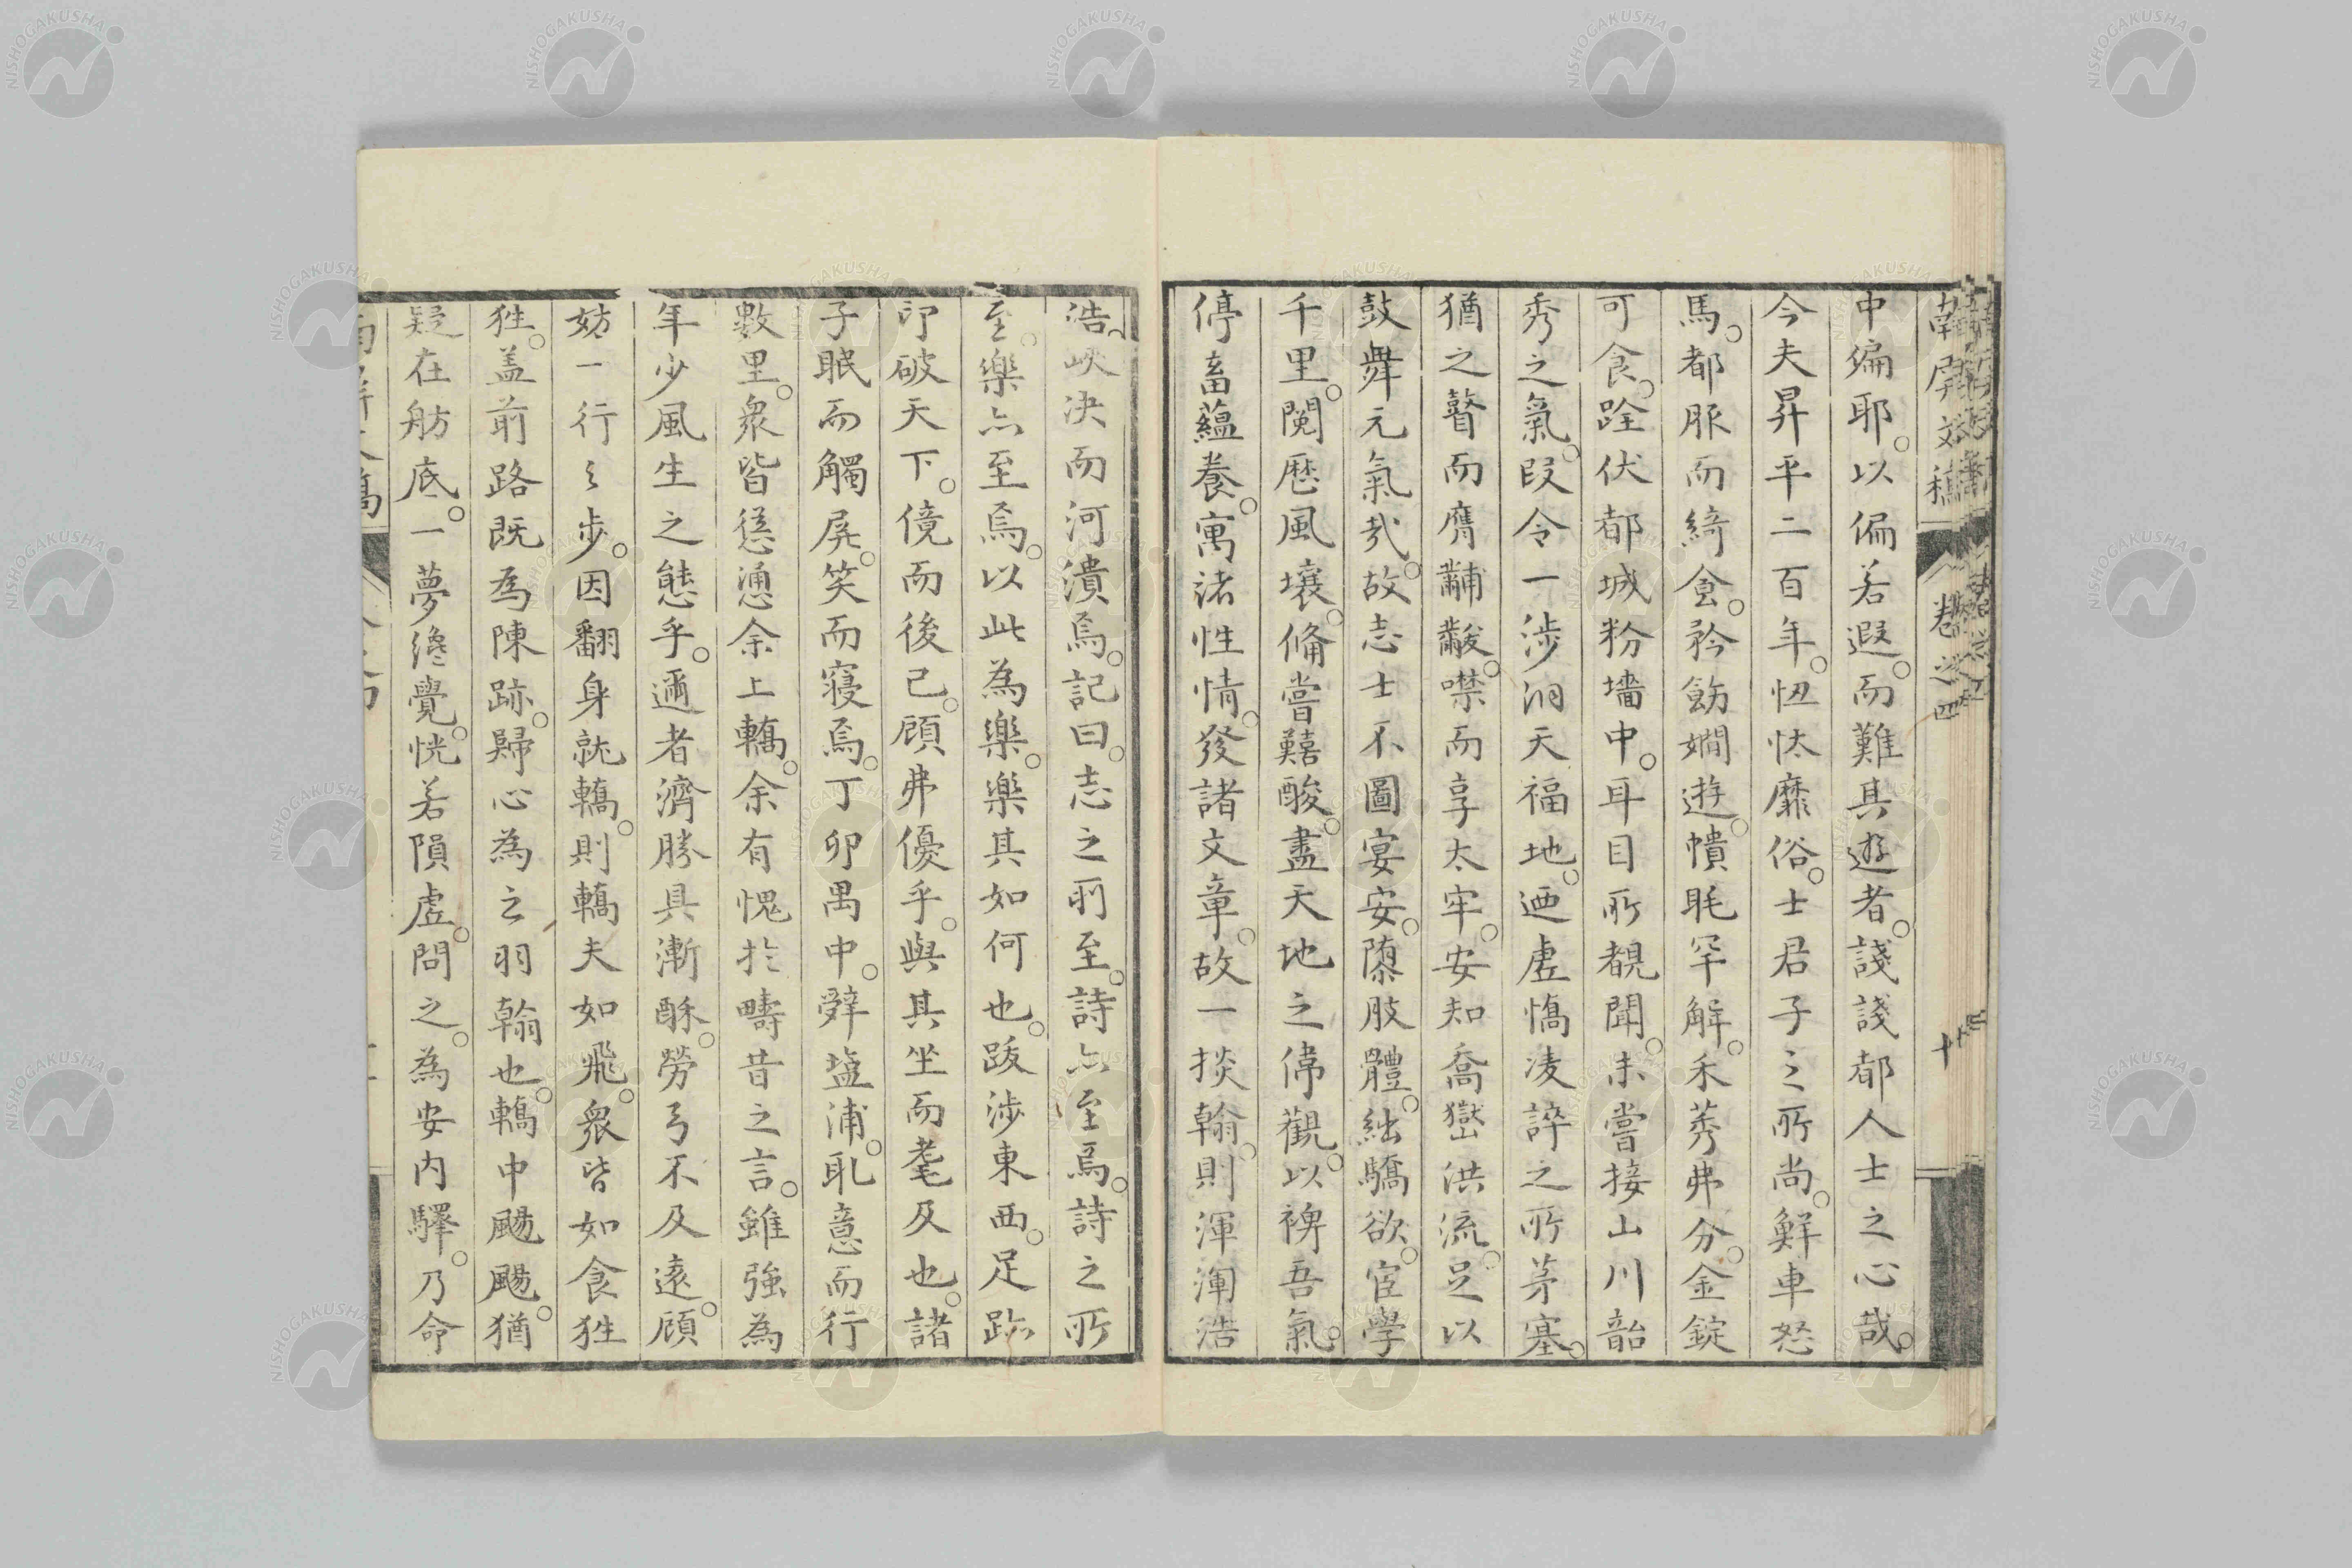 南屏文稿 卷之四 十
中偏耶。以偏若遐。而難其遊者。諓諓都人士之心哉。
今夫昇平二百年。忸忲靡俗。士君子之所尚。鮮車怒
馬。都服而綺食。矜飭嫺遊。憒眊罕解。禾莠弗分。金錠
可食。跧伏都城粉墻中。耳目所覩聞。未嘗接山川韶
秀之氣。叚令一涉洞天福地。迺虛憍凌誶之所茅塞。
猶之瞽而膺黼黻。噤而享太牢。安知喬嶽洪流。足以
鼓舞元氣哉。故志士不圖宴安。隳肢體。絀驕欲。宦學
千里。閱歷風壤。脩嘗囏酸。盡天地之偉觀。以裨吾氣。
停畜蘊養。寓諸性情。發諸文章。故一掞翰。則渾渾浩
浩。峽決而河潰焉。記曰。志之所至。詩亦至焉。詩之所
至。樂亦至焉。以此為樂。樂其如何也。跋涉東西。足跡
印破天下。傹而後已。顧弗優乎。與其坐而耄及也。諸
子眠而觸屏。笑而寝焉。丁卯禺中。辭塩浦。耴意而行
數里。衆皆慫慂余上轎。余有愧於疇昔之言。雖強為
年少風生之態乎。邇者濟勝具漸酥。勞弓不及遠。顧
妨一行之步。因翻身就轎。則轎夫如飛。衆皆如食狌
狌。盖前路既為陳跡。歸心為之羽翰也。轎中颺颺。猶
疑在舫底。一夢纔覺。恍若隕虛。問之。為安内驛。乃命